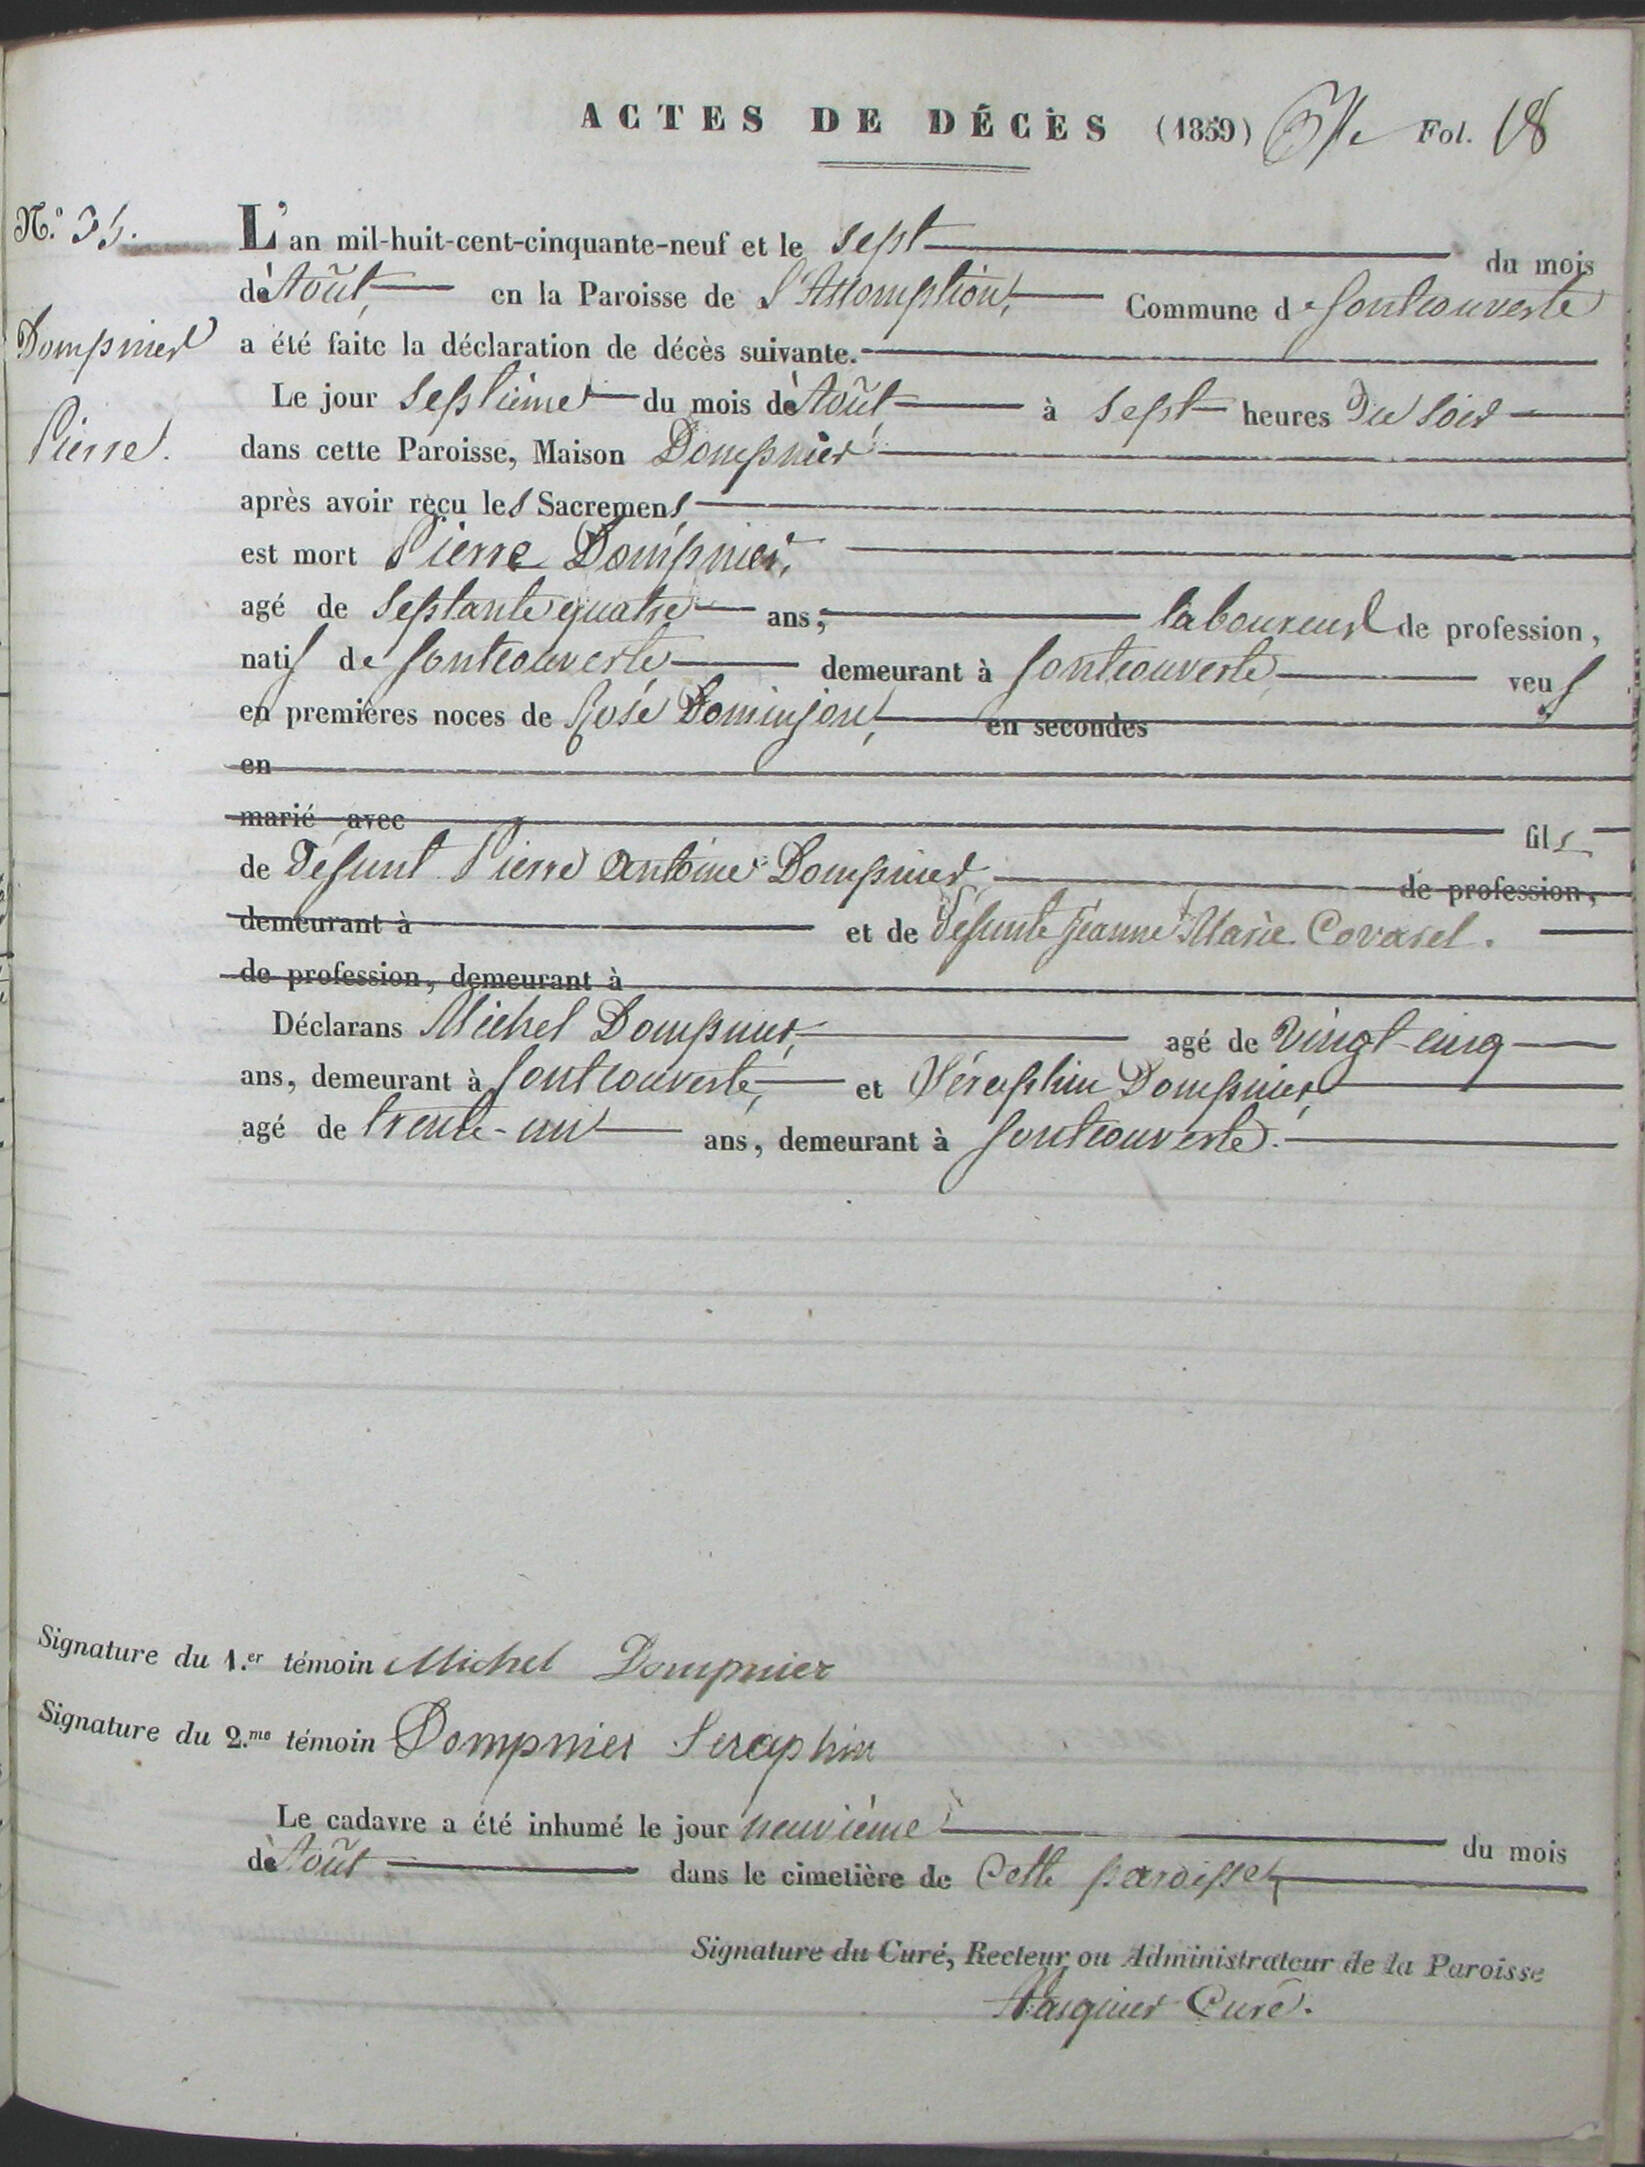 ACTES DE DÉCÈS (1859) Fol. 18
N.° 35.
L'an mil-huit-cent-cinquante-neuf et le sept du mois
d'Août, en la Paroisse de l'Assomption, Commune de Fontcouverte
Dompnier
a été faite la déclaration de décès suivante.
Le jour septième du mois d'Août, à sept heures du soir
Pierre.
dans cette Paroisse, Maison Dompnier
après avoir reçu les Sacremens
est mort Pierre Dompnier,
agé de septante quatre ans, laboureur de profession,
natif de Fontcouverte demeurant à Fontcouverte veuf
en premières noces de Rose Dominjon, en secondes
en
marié avec fils
de défunt Pierre Antoine Dompnier de profession,
demeurant à et de défunte Jeanne Marie Covarel.
de profession, demeurant à
Déclarans Michel Dompnier, agé de vingt-cinq
ans, demeurant à Fontcouverte, et Séraphin Dompnier,
agé de trente-un ans, demeurant à Fontcouverte.
Signature du 1.er témoin Michel Dompnier
Signature du 2.me témoin Dompnier Seraphin
Le cadavre a été inhumé le jour neuvième du mois
d'Août dans le cimetière de cette paroisse,
Signature du Curé, Recteur ou Administrateur de la Paroisse
Curé.